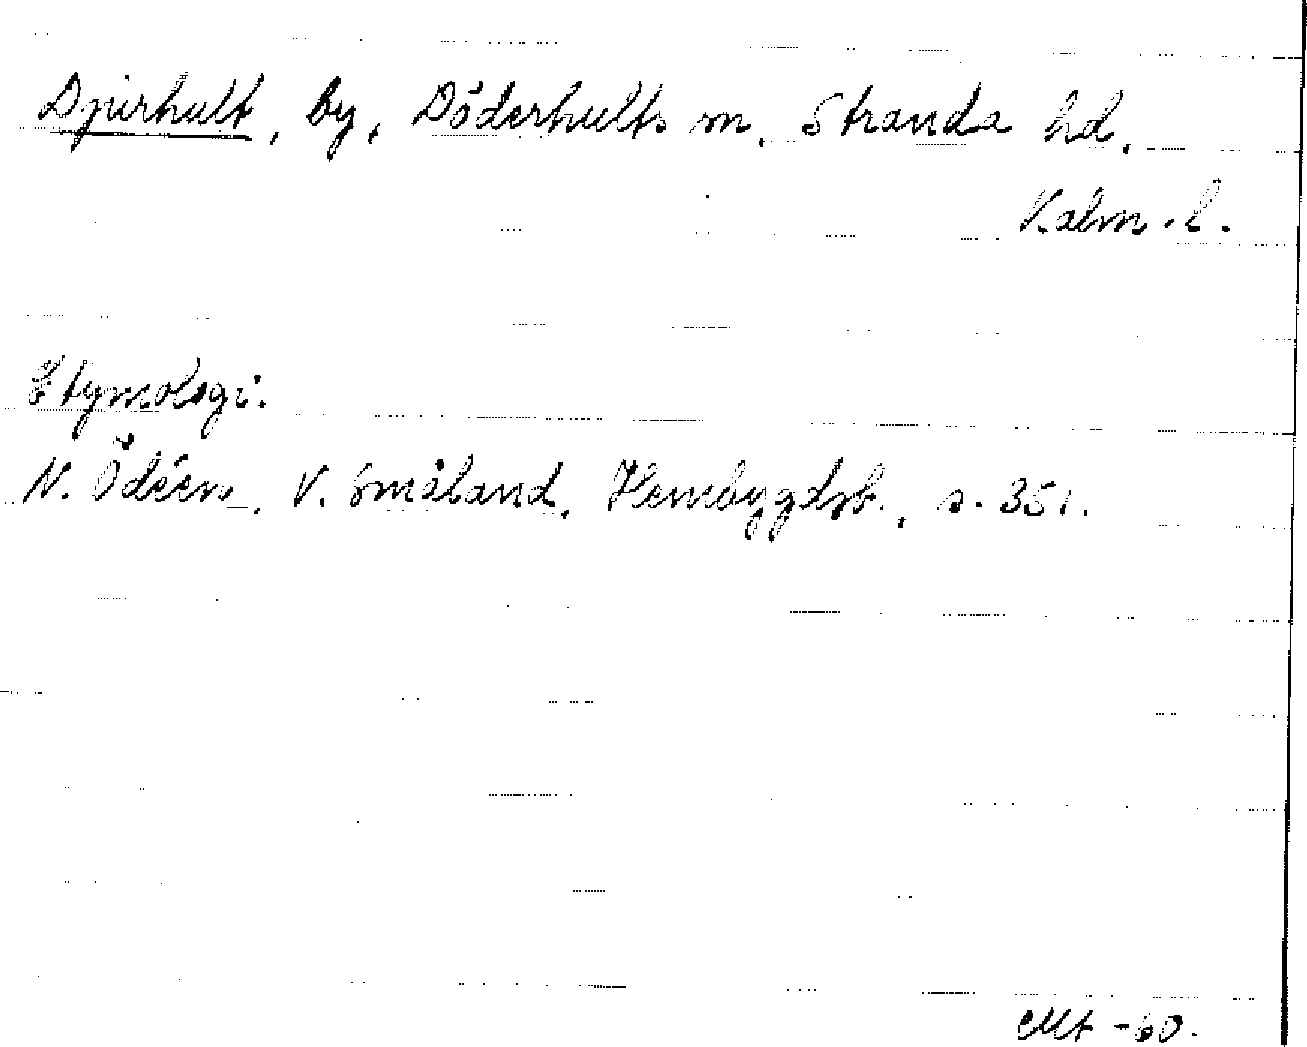 Djurhult, by, Döderhults sn, Stranda hd,
Kalm. l.
Etymologi:
N. Ödéen, V. Småland, Hembygdsb., s. 351.
-60.